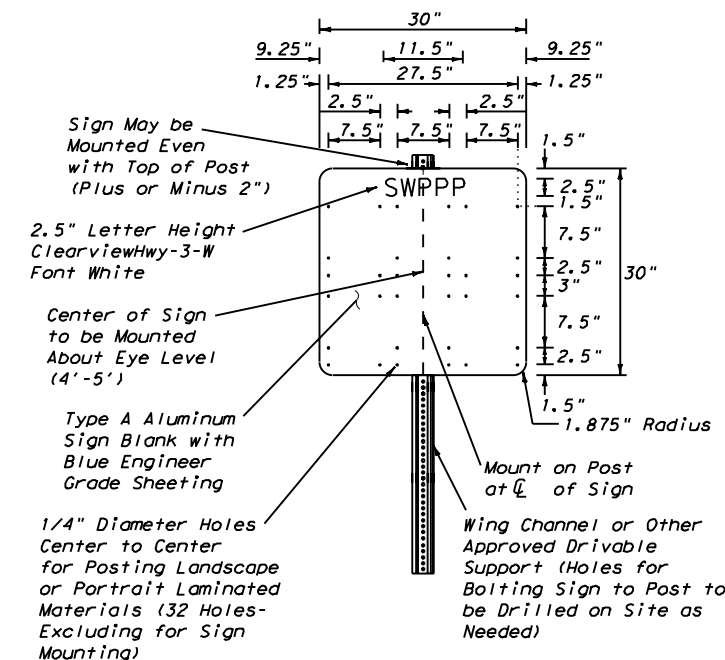 30"
9.25" 11.5" 9.25"
1.25" 27.5" 1.25"
2.5" 2.5"
7.5" 7.5" 7.5"
1.5"
Sign May be
Mounted Even
with Top of Post
(Plus or Minus 2")
SWPPP
2.5"
1.5"
7.5"
2.5"
3"
30"
7.5"
2.5"
1.5"
2.5" Letter Height
ClearviewHwy-3-W
Font White
Center of Sign
to be Mounted
About Eye Level
(4'-5')
Type A Aluminum
Sign Blank with
Blue Engineer
Grade Sheeting
1/4" Diameter Holes
Center to Center
for Posting Landscape
or Portrait Laminated
Materials (32 Holes-
Excluding for Sign
Mounting)
1.875" Radius
Mount on Post
at ℄ of Sign
Wing Channel or Other
Approved Drivable
Support (Holes for
Bolting Sign to Post to
be Drilled on Site as
Needed)